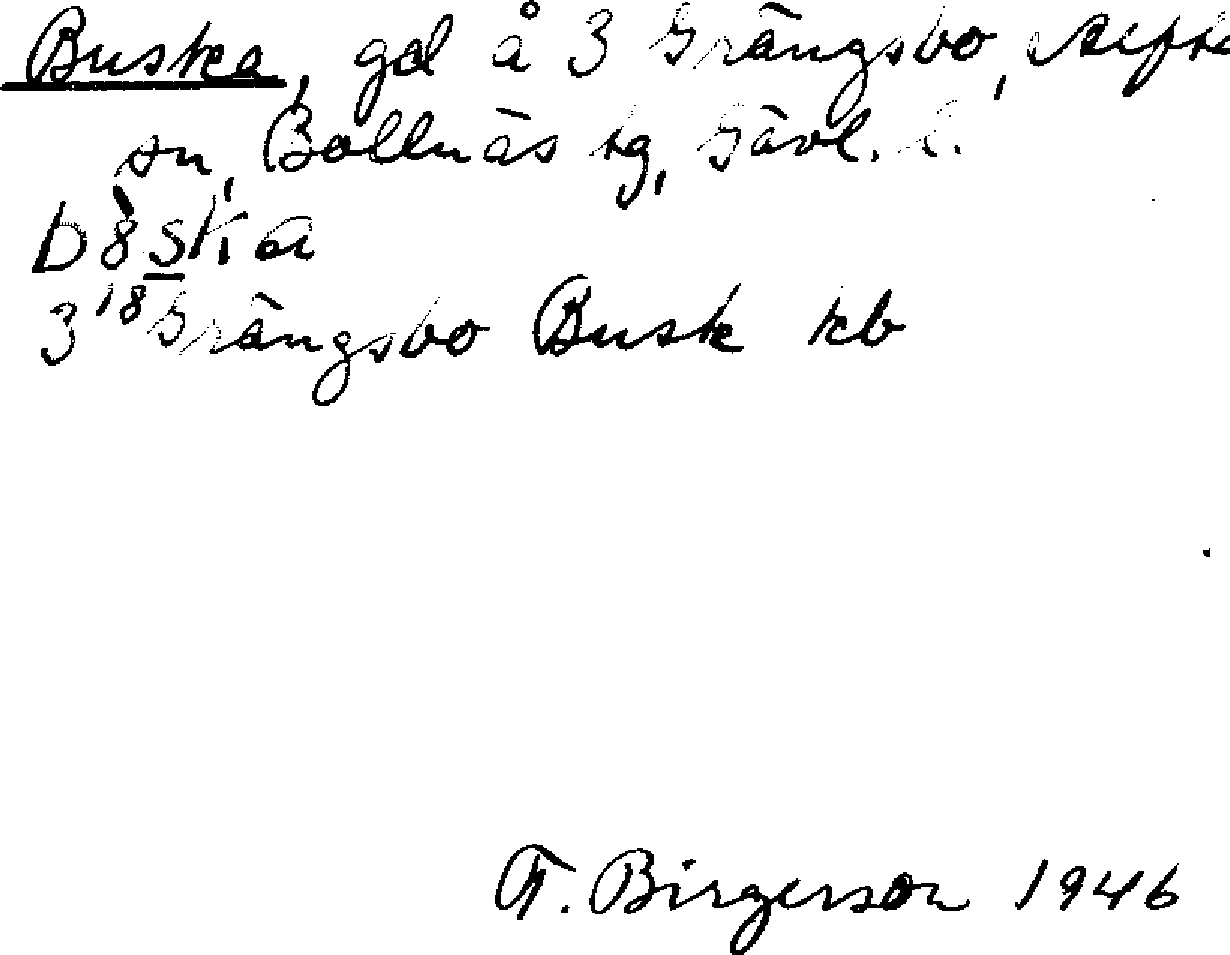 Buska, gd å 3 Grängsbo, Alfta
sn, Bollnäs tg, Gävl. l.
b8̀ska
3¹⁸ Grängsbo Busk kb
F. Birgerson 1946